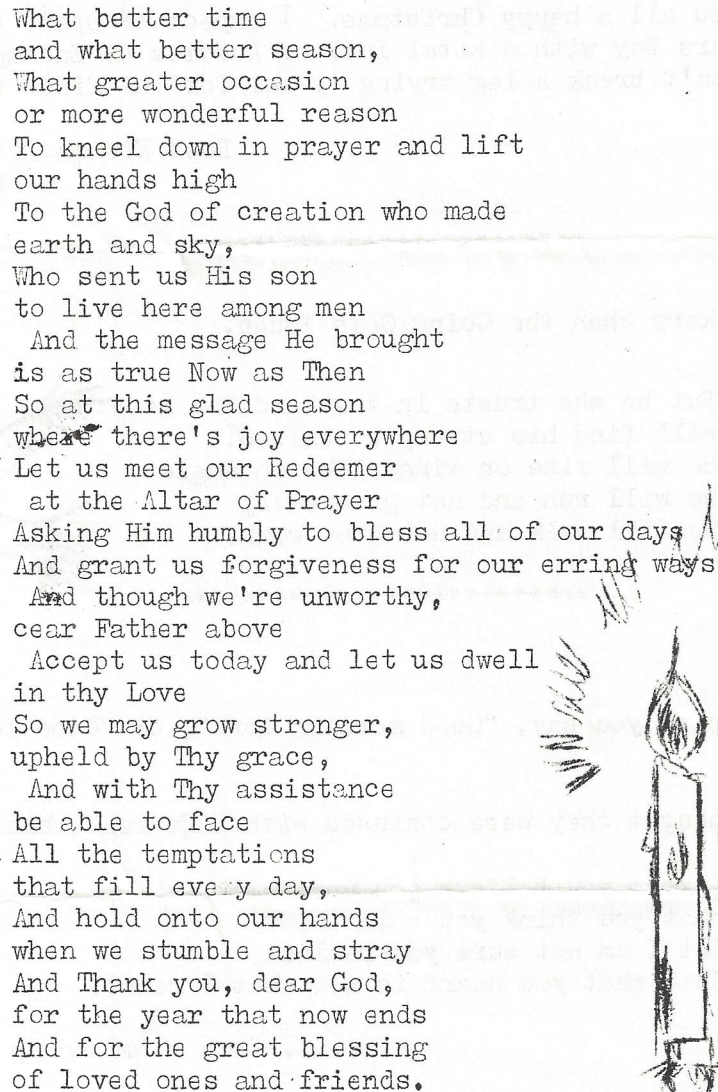 What better time
and what better season,
What greater occasion
or more wonderful reason
To kneel down in prayer and lift
our hands high
To the God of creation who made
earth and sky,
Who sent us His son
to live here among men
And the message He brought
is as true Now as Then
So at this glad season
where there's joy everywhere
Let us meet our Redeemer
at the Altar of Prayer
Asking Him humbly to bless all of our days
And grant us forgiveness for our erring ways
And though we're unworthy,
cear Father above
Accept us today and let us dwell
in thy Love
So we may grow stronger,
upheld by Thy grace,
And with Thy assistance
be able to face
All the temptations
that fill every day,
And hold onto our hands
when we stumble and stray
And Thank you, dear God,
for the year that now ends
And for the great blessing
of loved ones and friends.